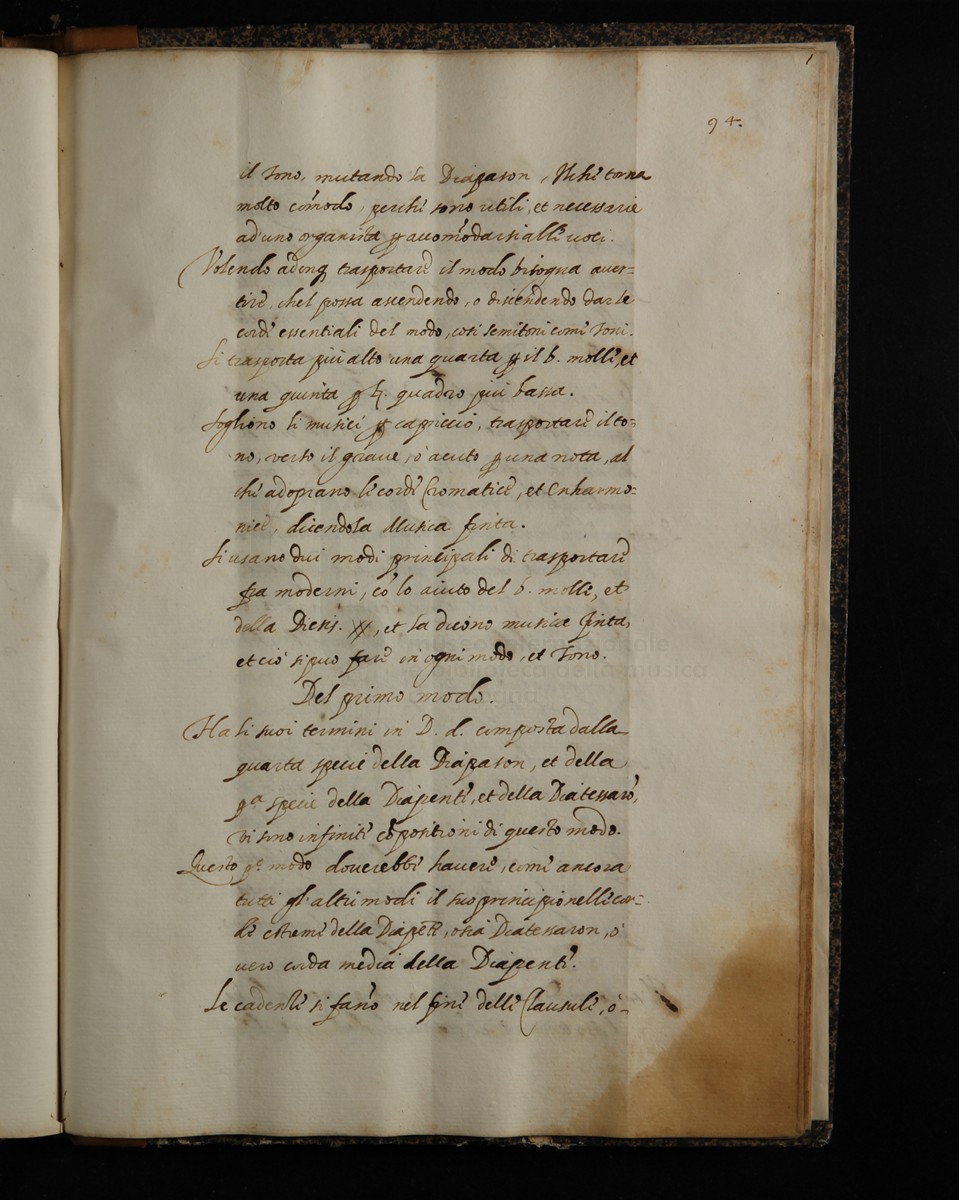 94.
il tono, mutando la Diapason, Ilche torna
molto cōmodo, perche sono utili, et necessarie
ad uno organista ꝑ accomōdarsi alle voci.
Volendo adunq trasportare il modo bisogna auer-
tire, chel possa ascendendo, o discendendo dar le
corde essentiali del modo, cosi semitoni come Toni.
Si trasporta piu alto una quarta ꝑ il b. molle, et
una quinta ꝑ ♮. quadro piu bassa.
Sogliono li musici ꝑ capriccio, trasportare il to-
no, verso il graue, o acuto ꝑ una nota, al
che adoprano le corde Cromatice, et Enharmo-
nice, dicendola Musica finta.
Si usano dui modi principali di trasportare
fra moderni, cō lo aiuto del b. molle, et
della Diesis. X, et la dicono musica finta,
et cio si puo fare in ogni modo, et Tono.
Del primo modo.
Ha li suoi termini in D. d. composta dalla
quarta specie della Diapason, et della
pª specie della Diapente, et della Diatessarō,
vi sono infinite cōpositioni di questo modo.
Questo pº modo douerebbe hauere, come ancora
tutti gl'altri modi il suo principio nelle cor-
de estreme della Diapēte, osia Diatessaron, o
uero corda media della Diapente.
Le cadentie si fano nel fine delle Clausule, o-